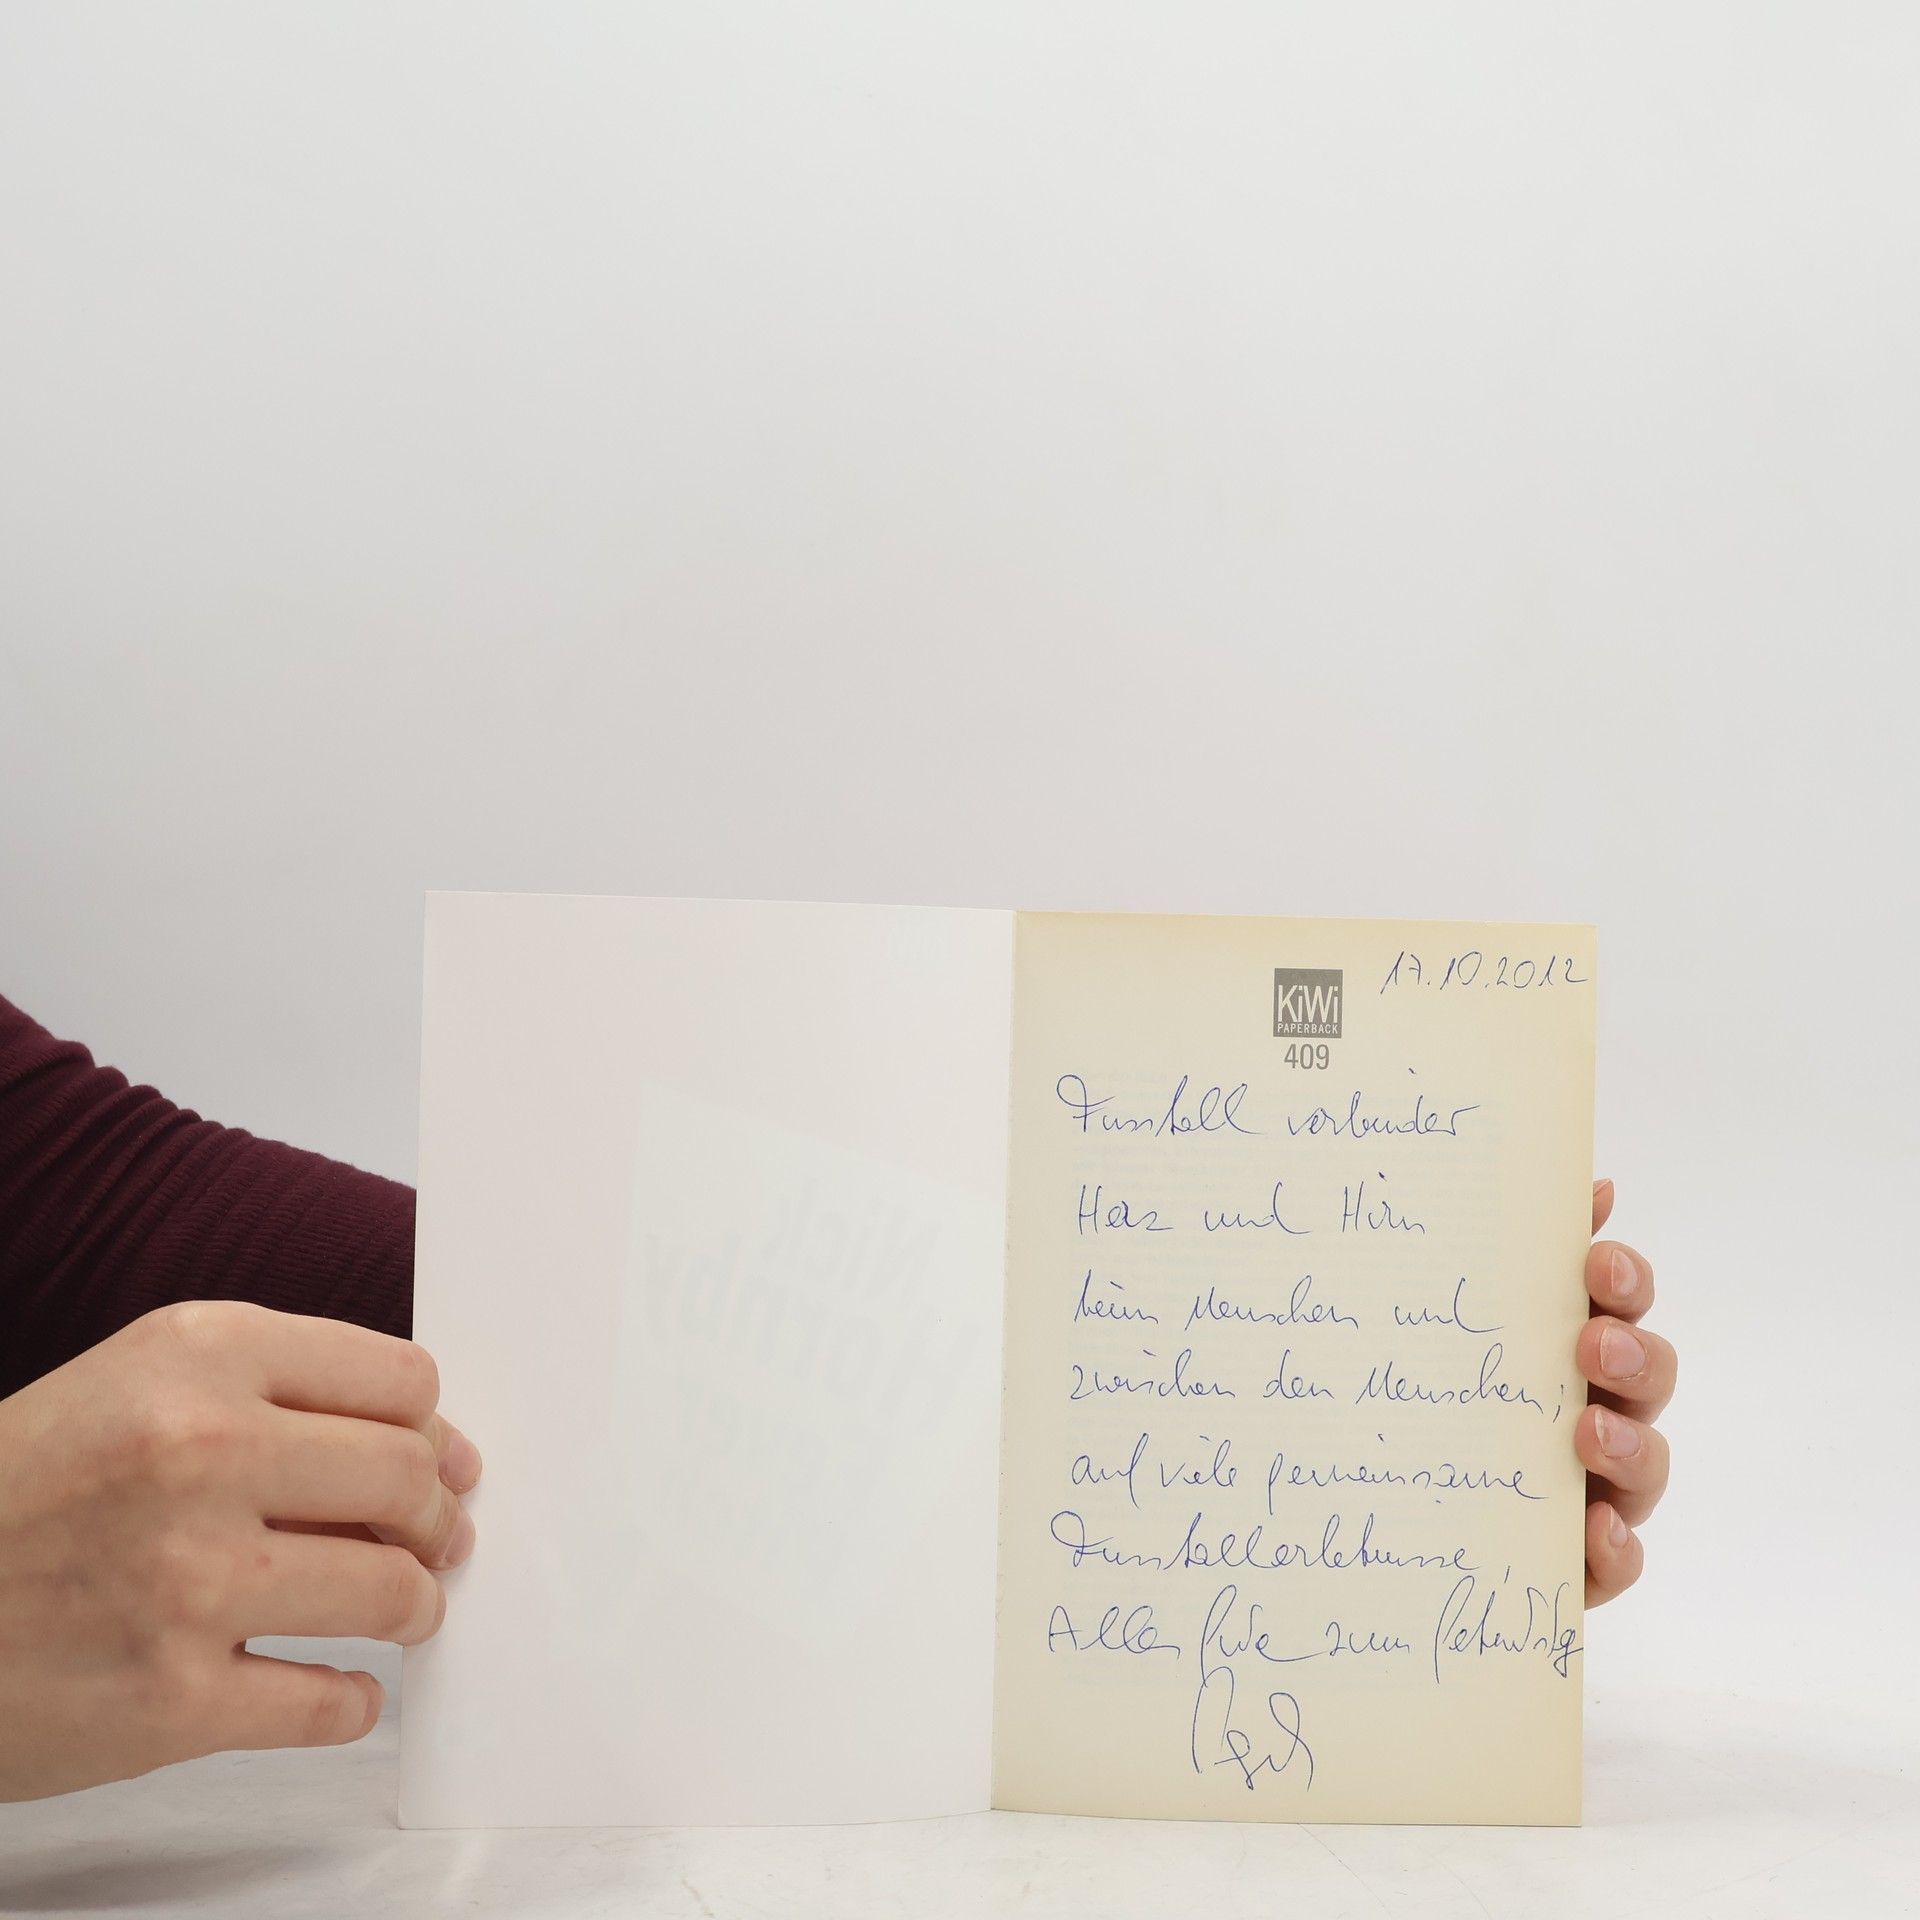 17.10.2012
KiWi
PAPERBACK
409
Fussball verbindet
Herz und Hirn
beim Menschen und
zwischen den Menschen;
auf viele gemeinsame
Fussballerlebnisse,
Alles Gute zum Geburtstag